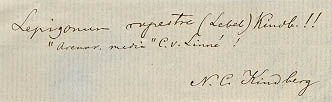 Lepigonum rupestre (Lebel) Kindb. !!
"Arenar. media" C. v. Linné !
N. C. Kindberg